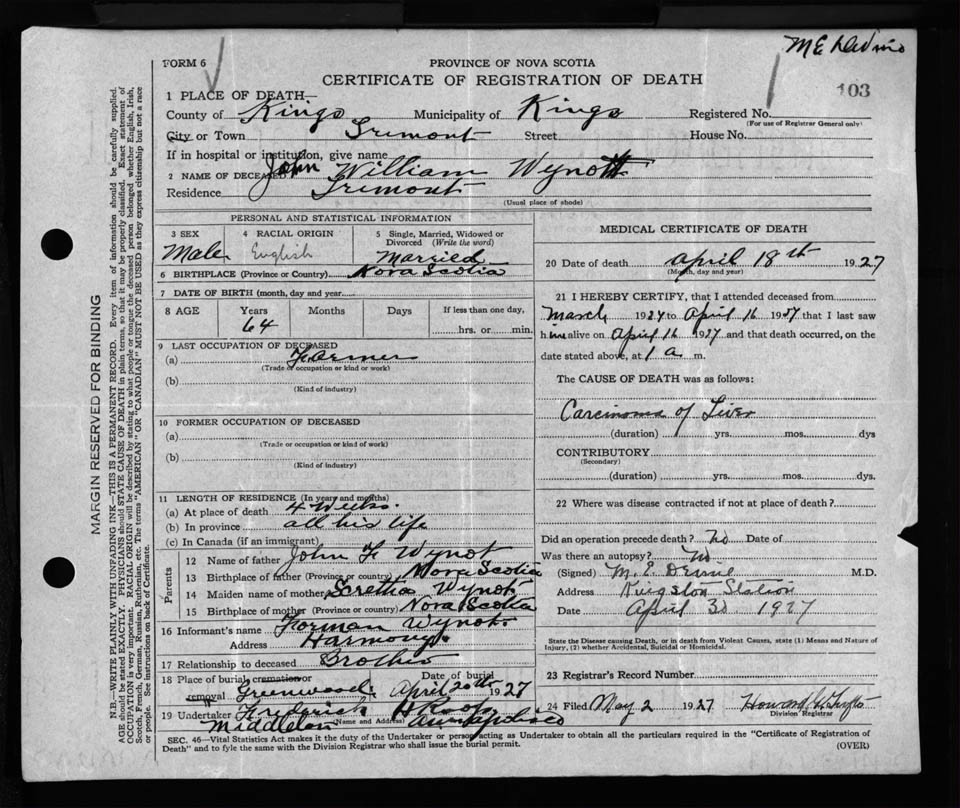 FORM 6
PROVINCE OF NOVA SCOTIA
CERTIFICATE OF REGISTRATION OF DEATH
103
1 PLACE OF DEATH—
County of Kings Municipality of Kings Registered No.
(For use of Registrar General only)
City or Town Tremont Street House No.
If in hospital or institution, give name
2 NAME OF DECEASED John William Wynott
Residence Tremont
(Usual place of abode)
PERSONAL AND STATISTICAL INFORMATION
3 SEX Male
4 RACIAL ORIGIN English
5 Single, Married, Widowed or Divorced (Write the word) Married
6 BIRTHPLACE (Province or Country) Nova Scotia
7 DATE OF BIRTH (month, day and year)
8 AGE Years 64 Months Days If less than one day, hrs. or min.
9 LAST OCCUPATION OF DECEASED
(a) Farmer
(Trade or occupation or kind or work)
(b)
(Kind of industry)
10 FORMER OCCUPATION OF DECEASED
(a)
(Trade or occupation or kind of work)
(b)
(Kind of industry)
11 LENGTH OF RESIDENCE (In years and months)
(a) At place of death 4 weeks.
(b) In province all his life
(c) In Canada (if an immigrant)
Parents
12 Name of father John F Wynot
13 Birthplace of father (Province or country) Nova Scotia
14 Maiden name of mother Wynot
15 Birthplace of mother (Province or country) Nova Scotia
16 Informant's name Forman Wynot
Address Harmony
17 Relationship to deceased Brother
18 Place of burial cremation or removal Greenwood Date of burial April 20th 1927
19 Undertaker Frederick
(Name and Address) Middleton Annapolis Co
MEDICAL CERTIFICATE OF DEATH
20 Date of death April 18th 1927
(Month, day and year)
21 I HEREBY CERTIFY, that I attended deceased from
March 1927 to April 16 1927 that I last saw
him alive on April 16 1927 and that death occurred, on
date stated above, at 1 a. m.
The CAUSE OF DEATH was as follows:
Carcinoma of Liver
(duration) yrs. mos. dys
CONTRIBUTORY
(Secondary)
(duration) yrs. mos. dys.
22 Where was disease contracted if not at place of death?
Did an operation precede death? no Date of
Was there an autopsy? no
(Signed) M. E. M.D.
Address Kingston Station
Date April 30 1927
State the Disease causing Death, or in death from Violent Causes, state (1) Means and Nature of
Injury, (2) whether Accidental, Suicidal or Homicidal.
23 Registrar's Record Number
24 Filed May 2 1927 Howard
Division Registrar
SEC. 46—Vital Statistics Act makes it the duty of the Undertaker or person acting as Undertaker to obtain all the particulars required in the "Certificate of Registration of
Death" and to fyle the same with the Division Registrar who shall issue the burial permit.
(OVER)
MARGIN RESERVED FOR BINDING
N.B.—WRITE PLAINLY WITH UNFADING INK—THIS IS A PERMANENT RECORD. Every item of information should be carefully supplied.
AGE should be stated EXACTLY. PHYSICIANS should STATE CAUSE OF DEATH in plain terms, so that it may be properly classified. Exact statement of
OCCUPATION is very important. RACIAL ORIGIN will be described by stating to what people or tongue the deceased person belonged whether English, Irish,
Scotch, French, German, Russian, Ruthenian, etc. The terms "AMERICAN" OR "CANADIAN" MUST NOT BE USED as they express citizenship but not a race
or people. See instructions on back of Certificate.